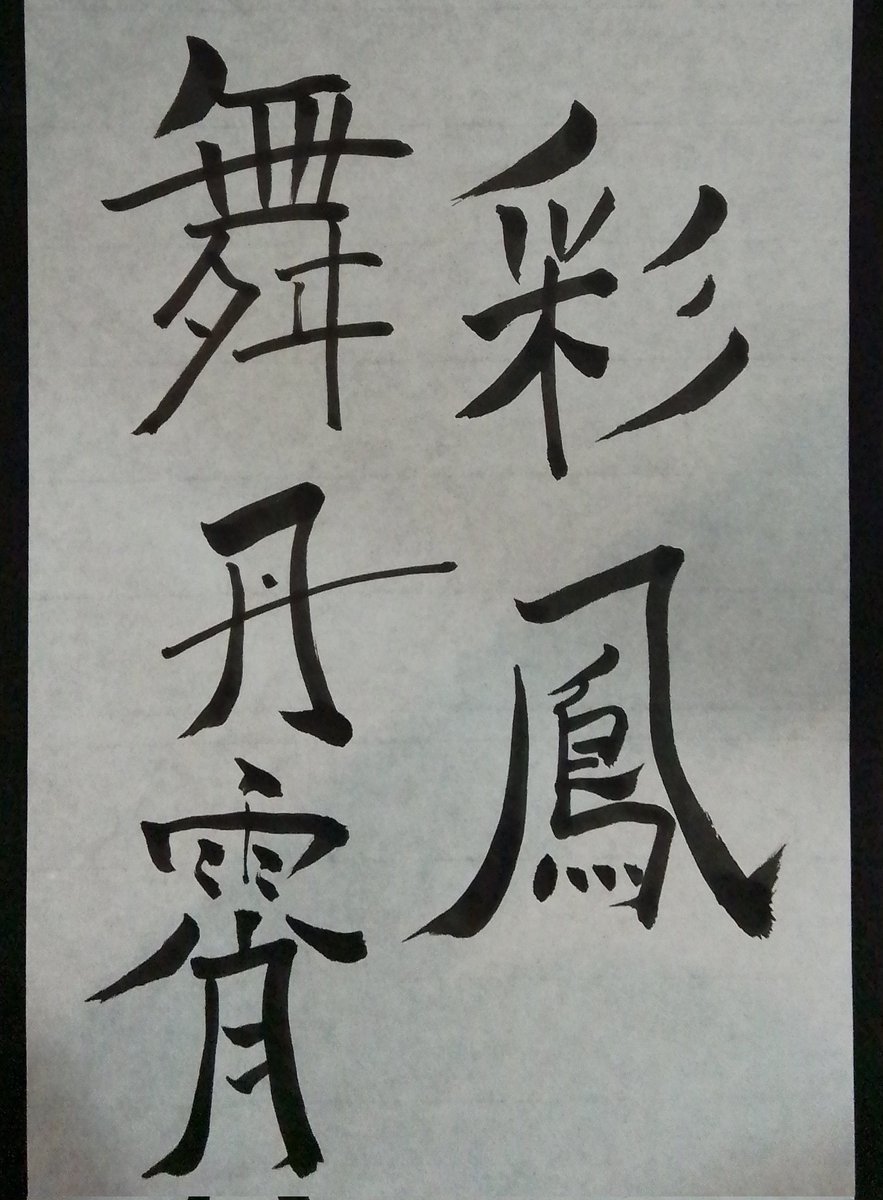 彩鳳
舞丹霄